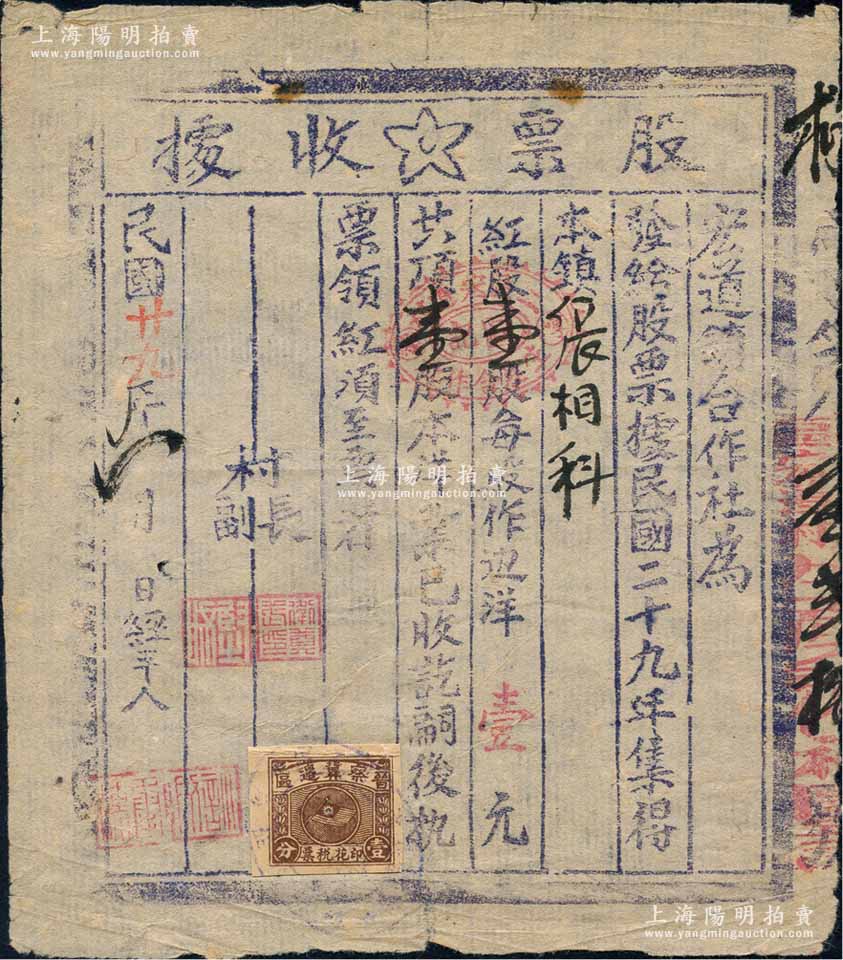 上海陽明拍賣
www.yangmingauction.com
上海陽明拍賣
www.yangmingauction.com
股票☆收據
宏道鎮合作社為
發給股票據民國二十九年集得
本鎮 相科
紅股壹股每股作边洋壹元
共項壹股本洋 業已收訖嗣後執
票領紅須至 者
村長
副
民國廿九年 月 日經手人
晉察冀邊區
印花稅票
壹分
上海陽明拍賣
www.yangmingauction.com
上海陽明拍賣
www.yangmingauction.com